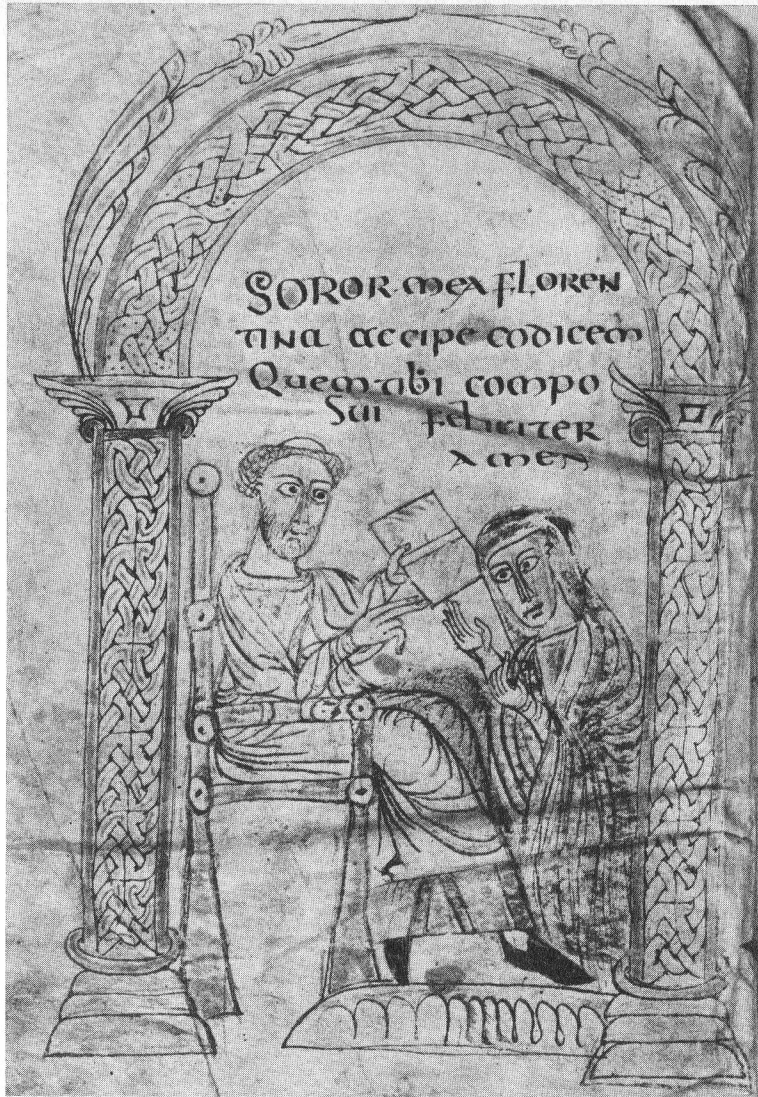 SOROR mea FLOREN
TINA accipe codicem
Quem tibi compo
Sui feliciter
AMEN